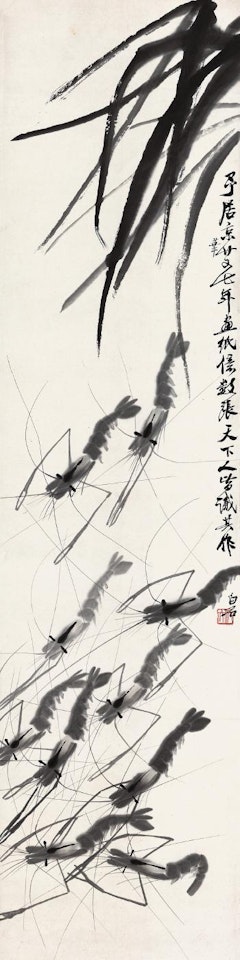 予居京華廿又七年畫紙數張天下人皆識其作
白石